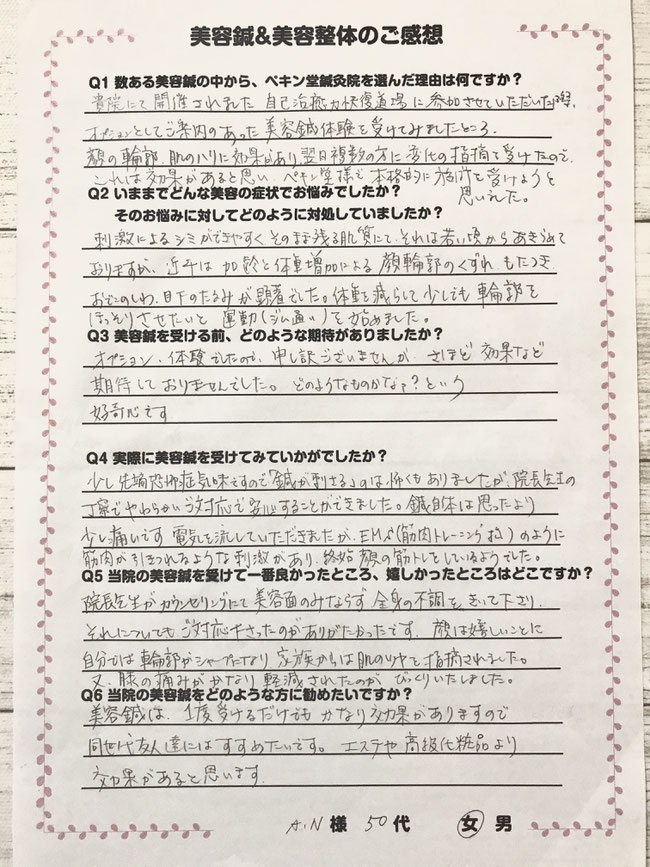 美容鍼&美容整体のご感想
Q1 数ある美容鍼の中から、ペキン堂鍼灸院を選んだ理由は何ですか？
貴院にて開催されました 自己治癒力快復道場に参加させていただいた際、
オプションとしてご案内のあった美容鍼体験を受けてみましたところ、
顔の輪郭、肌のハリに効果があり翌日複数の方に変化の指摘を受けたので、
これは効果があると思い、ペキン堂様で本格的に施術を受けようと
思いました。
Q2 いままでどんな美容の症状でお悩みでしたか？
そのお悩みに対してどのように対処していましたか？
刺激によるシミができやすくそのまま残る肌質にて、それは若い頃からあきらめて
おりますが、近年は加齢と体重増加による顔輪郭のくずれ、もたつき
おでこのしわ、目下のたるみが顕著でした。体重を減らして少しでも輪郭を
ほっそりさせたいと 運動(ジム通い)を始めました。
Q3 美容鍼を受ける前、どのような期待がありましたか？
オプション、体験でしたので、申し訳ございませんが、さほど効果など
期待しておりませんでした。どのようなものかな？という
好奇心です
Q4 実際に美容鍼を受けてみていかがでしたか？
少し先端恐怖症気味ですので「鍼が刺さる」のは怖くもありましたが、院長先生の
丁寧でやわらかいご対応で安心することができました。鍼自体は思ったより
少し痛いです 電気を流していただきましたが、EMS(筋肉トレーニング)のように
筋肉が引きつれるような刺激があり、終始顔の筋トレをしているようでした。
Q5 当院の美容鍼を受けて一番良かったところ、嬉しかったところはどこですか？
院長先生がカウンセリングにて美容面のみならず全身の不調をきいて下さり、
それについてもご対応下さったのがありがたかったです。顔は嬉しいことに
自分では輪郭がシャープになり、家族からは肌のツヤを指摘されました。
又、膝の痛みがかなり軽減されたのがびっくりいたしました。
Q6 当院の美容鍼をどのような方に勧めたいですか？
美容鍼は、1度受けるだけでもかなり効果がありますので
同世代友人達にはすすめたいです。エステや高級化粧品より
効果があると思います。
A.N 様 50代 女 男